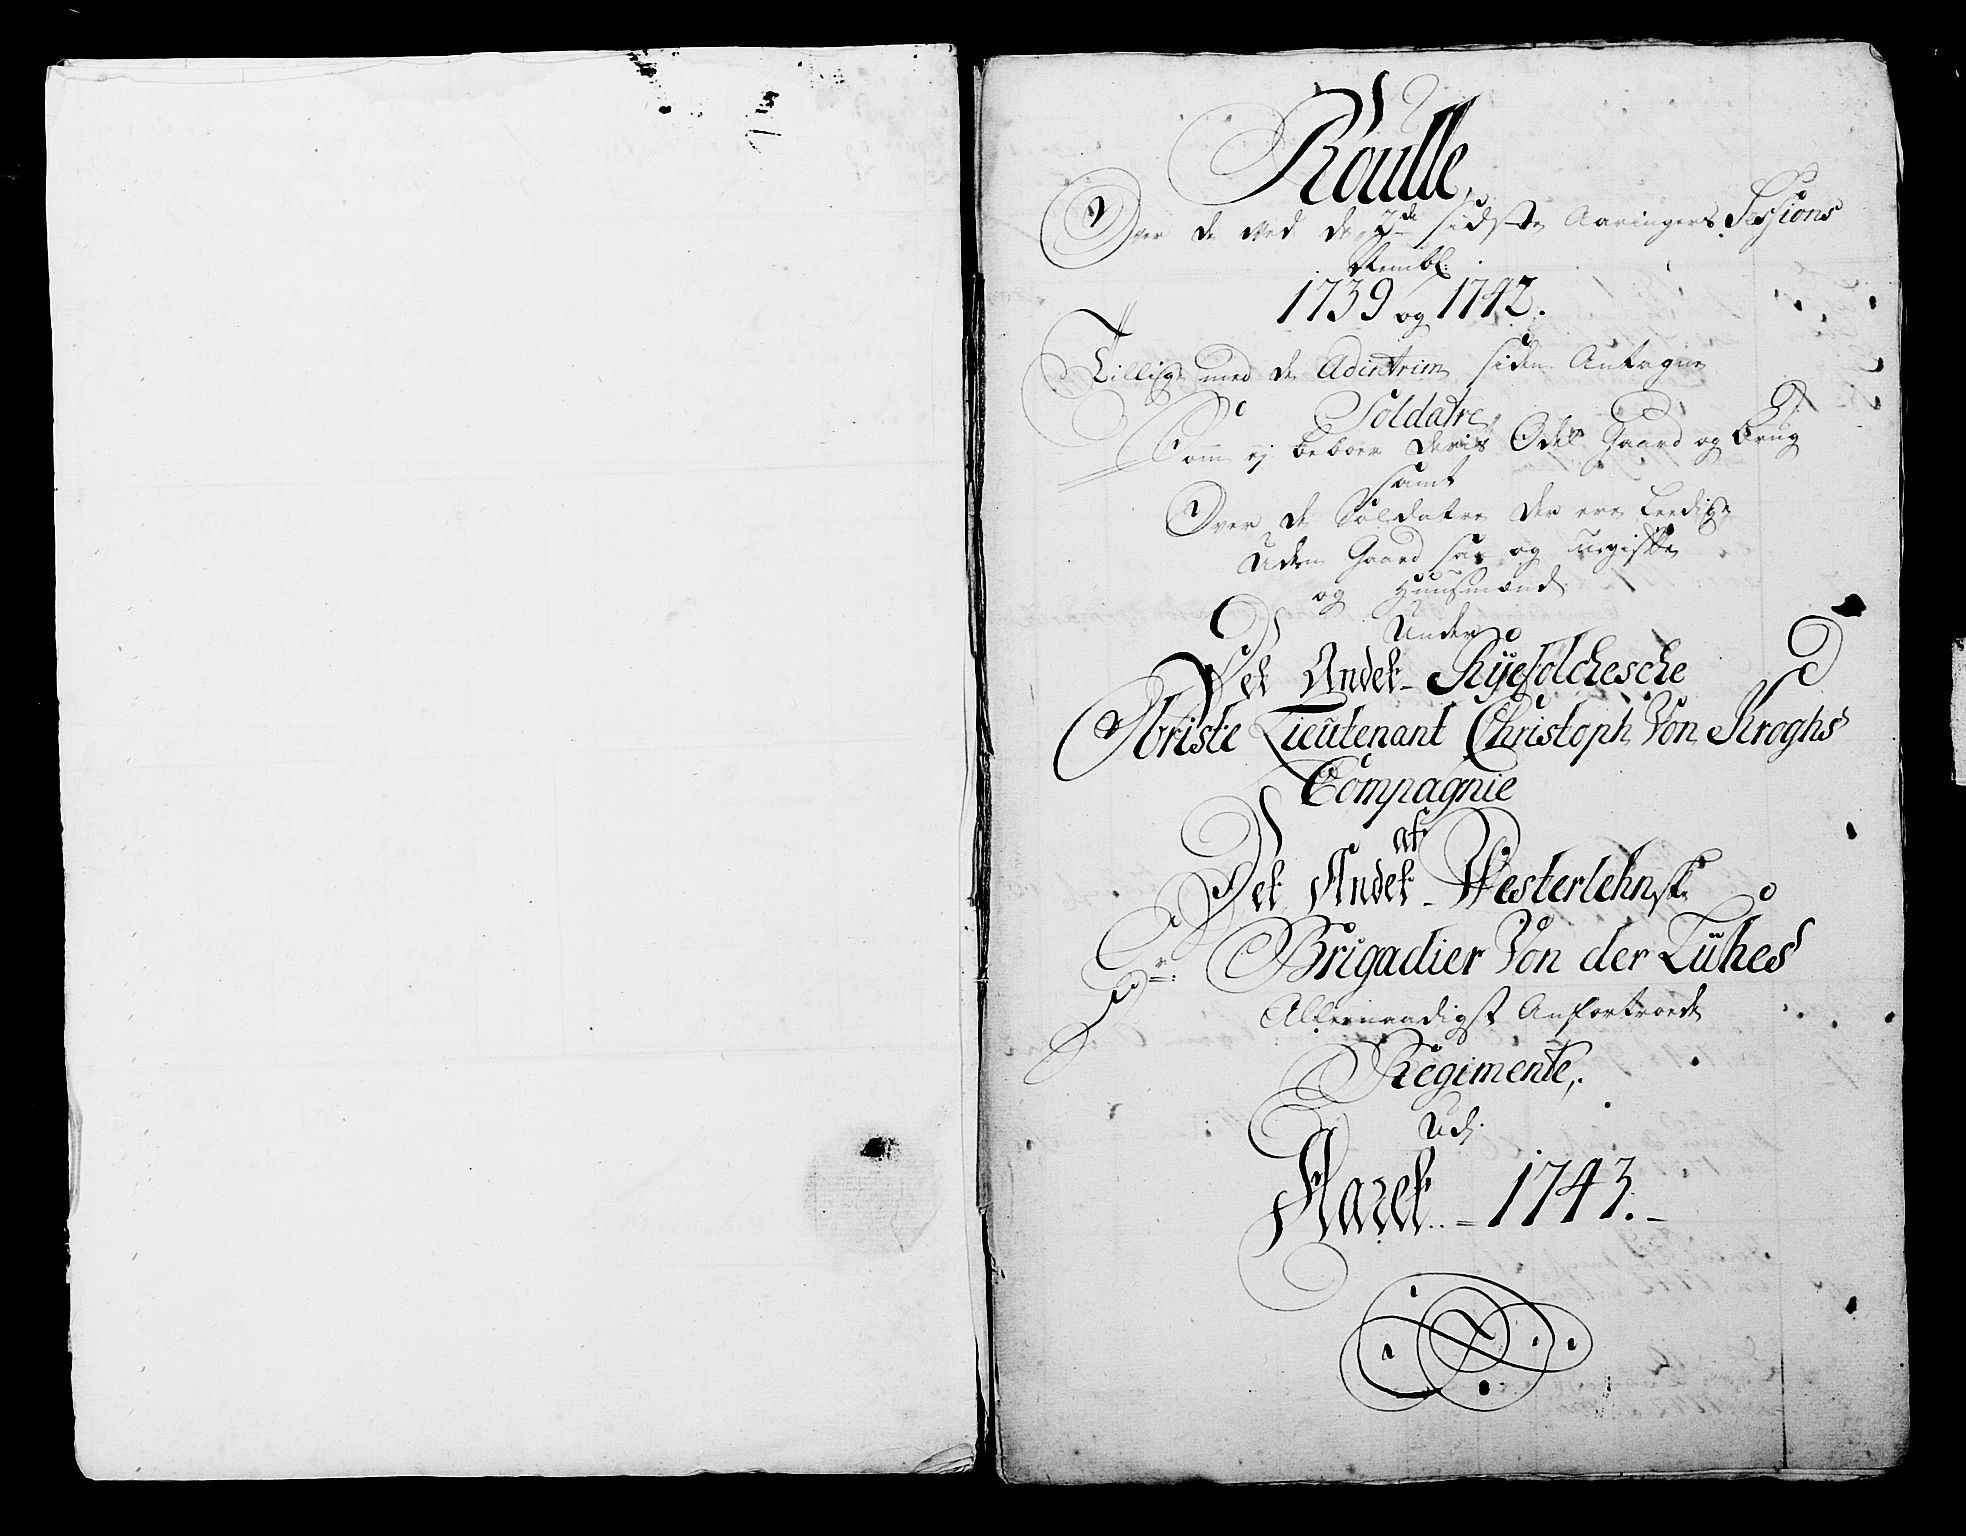 Roulle,
Over de ved de 2de sidste Aaringers Sessions
1739 og 1742.
Tillige med de Adintrim siden Antagne
Soldatre,
Som ej beboer deris Odel Gaard og brug
samt
Over de Soldatre der ere Leedige
Uden Gaard saa og
og Huusmænd
Under
Det Andet Ryefölchesche
Obriste Lieutenant Christoph Von Kroghs
Compagnie
af
Det Andet - Westerlehnske
Hr: Brigadier Von der Lühes
Allernaadigst Anfortroede
Regimente,
Udj
Aaret - 1743. -